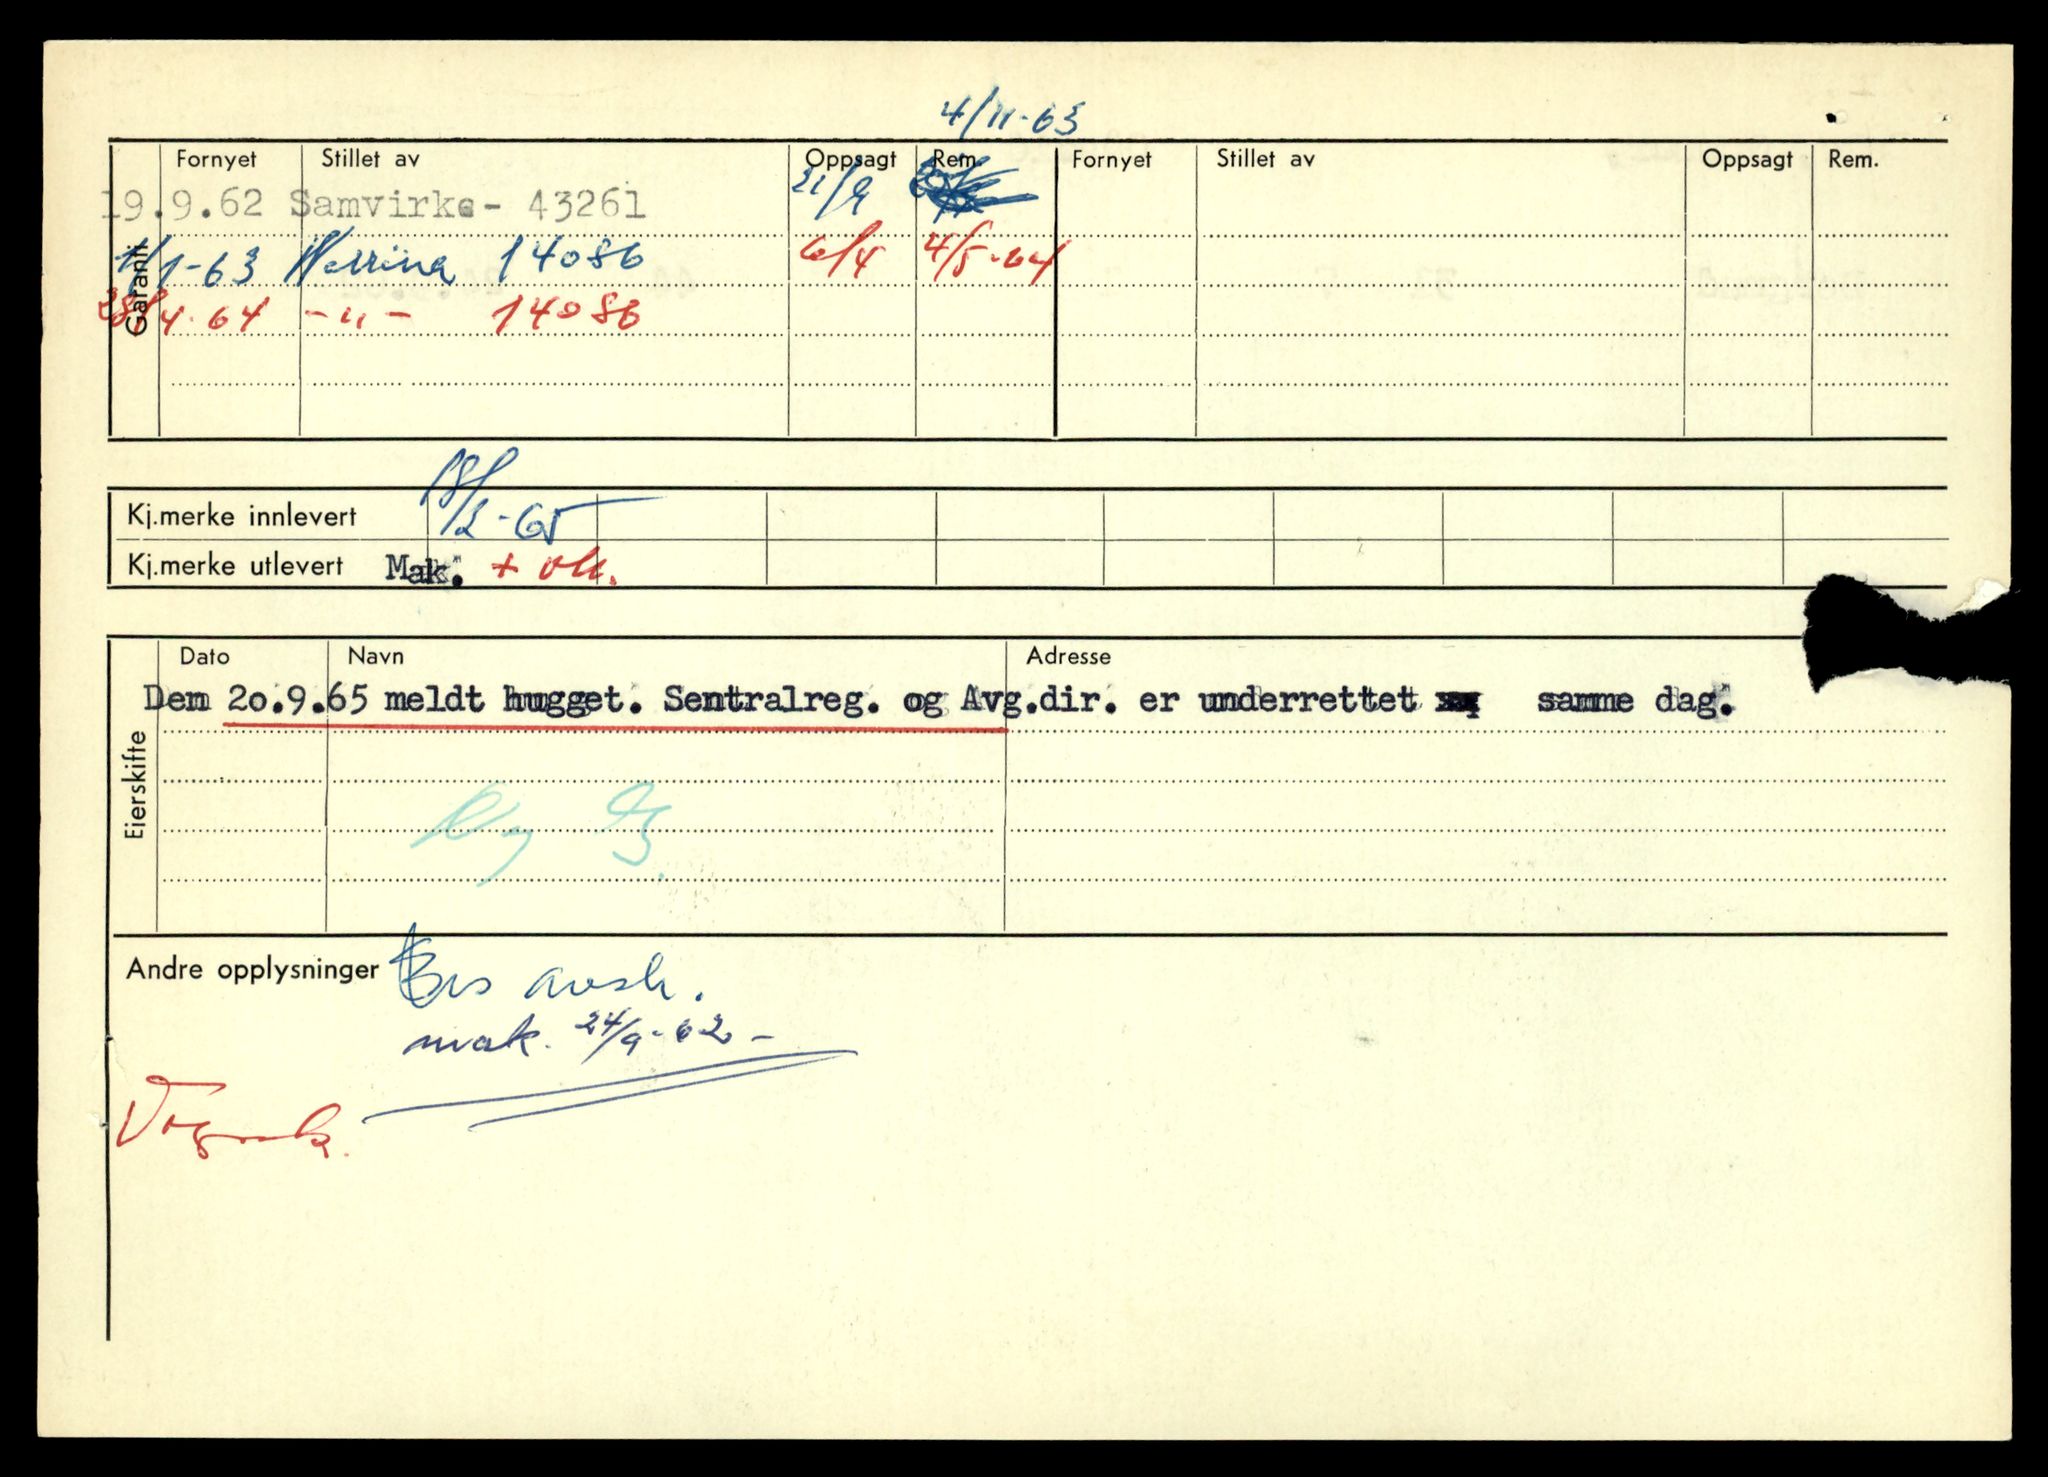 4/11-63
Fornyet Stillet av Oppsagt Rem. Fornyet Stillet av Oppsagt Rem.
Garanti
19.9.62 Samvirke - 43261 21/9
1/1-63 14086 6/4 4/5-64
28/4-64 -"- 14086
18/2-65
Kj.merke innlevert
Kj.merke utlevert Mak. + vk.
Eierskifte
Dato Navn Adresse
Den 20.9.65 meldt hugget. Sentralreg. og Avg.dir. er underrettet samme dag.
Andre opplysninger
mak. 24/9-62 -
Vognk.